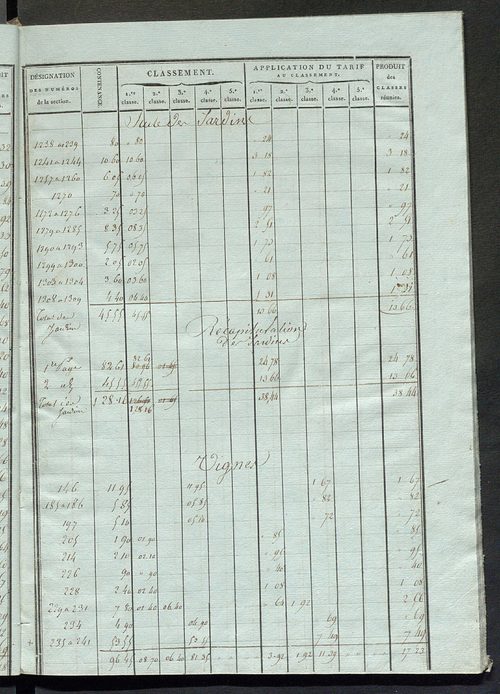 DÉSIGNATION DES NUMÉROS de la section.
CONTENANCE.
CLASSEMENT.
APPLICATION DU TARIF AU CLASSEMENT.
PRODUIT des CLASSES réunies.
1.re classe. 2.e classe. 3.e classe. 4.e classe. 5.e classe. 1.re classe. 2.e classe. 3.e classe. 4.e classe. 5.e classe.
Suite Des Jardins
1238 a 1239 80 " 80 " 24 " 24
1241 a 1244 10.60 10.60 3 18 3 18
1257 a 1260 6.05 06.05 1 82 1 82
1270 70 " 70 " 21 " 21
1272 a 1276 3.25 03.25 " 97 " 97
1279 a 1285 8.35 08.35 2 51 2 51
1290 a 1293 5.75 05.75 1 73 1 73
1299 a 1300 2.05 02.05 " 61 " 61
1303 a 1304 3.60 03.60 1 08 1 08
1308 a 1309 4.40 04.40 1 31 1 31
Total des Jardins 45.55 45.45 13 66 13.66
Récapitulation
Des Jardins
1re Page 82.61 82.61 24 78 24 78
2 45.55 45.55 13 66 13 66
Total des Jardins 1 28.16 128 16 38,44 38 44
Vignes
146 11.95 11.95 1 67 1 67
185 a 186 5.85 05.85 " 82 " 82
197 5.10 05.10 " 72 " 72
205 1 90 01.90 " 85 " 85
214 2.10 02.10 " 95 " 95
226 90 " 90 " 40 " 40
228 2.40 02.40 1 08 1 08
229 a 231 7.80 01.40 06.40 " 64 1.92 2 56
234 4.90 04.90 " 69 " 69
235 a 241 53.55 53.55 7 49 7 49
96.45 08.70 06.40 81.35 3.92 1 92 11.39 17 23